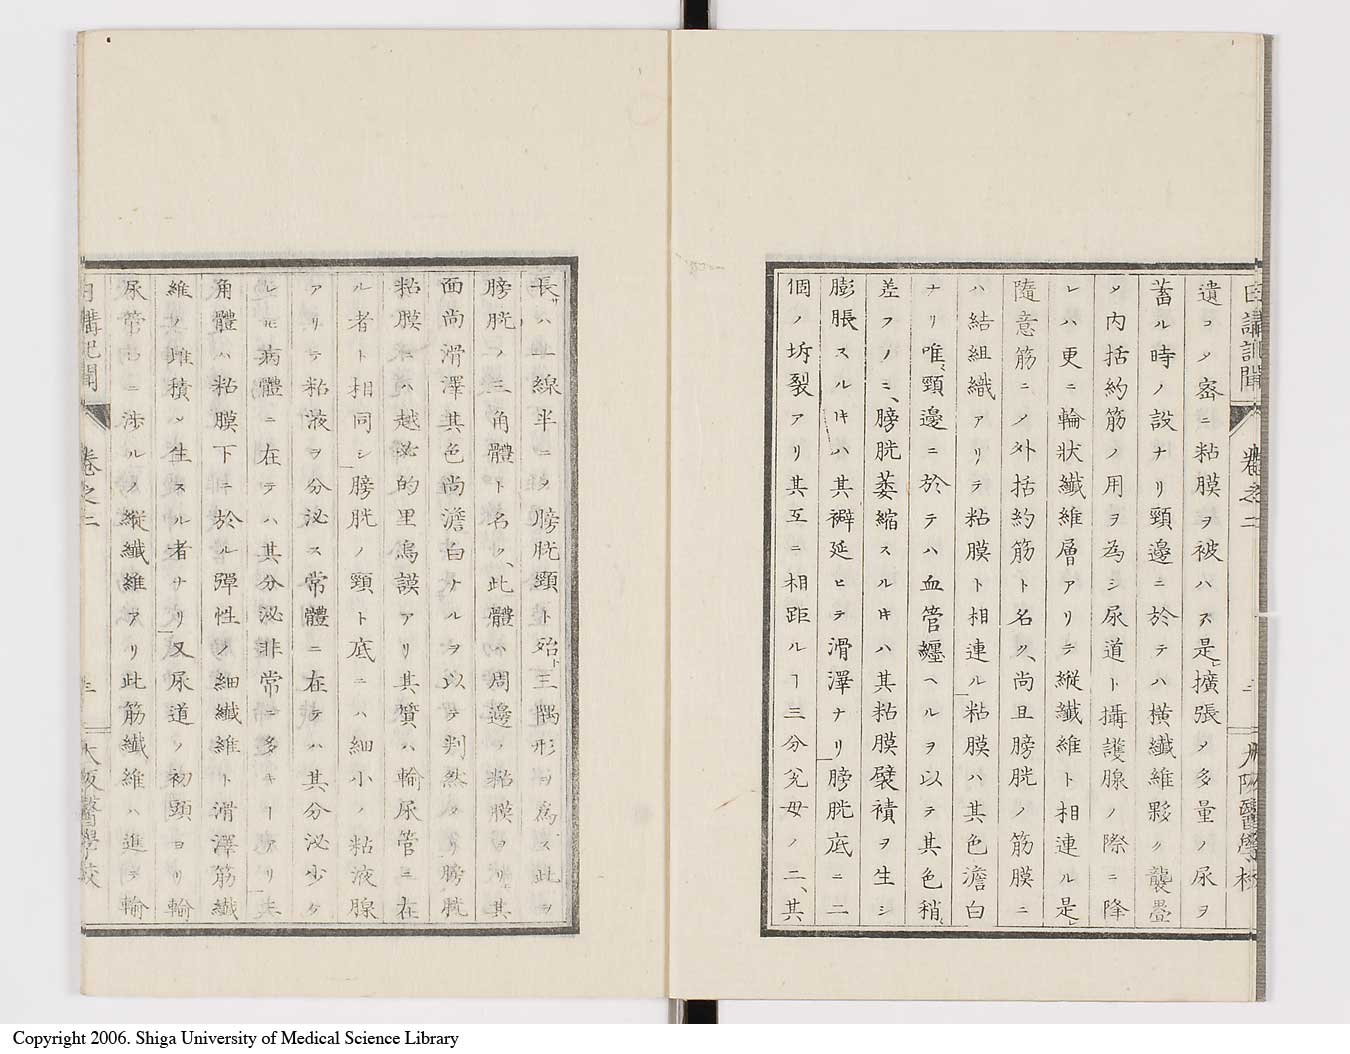 日講記聞 卷之二 三 大阪醫學校
遺コノ密ニ粘膜ヲ被ハス是レ擴張メ多量ノ尿ヲ
蓄ル時ノ設ナリ頸邊ニ於テハ橫纖維夥ク襲疊
メ內括約筋ノ用ヲ為シ尿道ト攝護腺ノ際ニ降
レハ更ニ輪狀纖維層アリテ縱纖維ト相連ル是レ
隨意筋ニノ外括約筋ト名ク、尚且膀胱ノ筋膜ニ
ハ結組織アリテ粘膜ト相連ル粘膜ハ其色澹白
ナリ唯頸邊ニ於テハ血管纏ヘルヲ以テ其色稍
差フノミ、膀胱萎縮スルキハ其粘膜襞襀ヲ生シ
膨脹スルキハ其襞延ヒテ滑澤ナリ膀胱底ニ二
個ノ坼裂アリ其互ニ相距ルヿ三分兊母ノ二、其
長サハ一線半ニノ膀胱頸ト殆ト三隅形ヲ為ス此ヲ
膀胱ノ三角體ト名ク、此體ハ周邊ノ粘膜ヨリ其
面尚滑澤其色尚澹白ナルヲ以テ判然タリ膀胱
粘膜ニハ越必的里烏謨アリ其質ハ輸尿管ニ在
ル者ト相同シ膀胱ノ頸ト底ニハ細小ノ粘液腺
アリテ粘液ヲ分泌ス常體ニ在テハ其分泌少ケ
レ𪜈病體ニ在テハ其分泌非常ニ多キヿアリ夫
角體ハ粘膜下ニ於ル彈性ノ細纖維ト滑澤筋纖
維ノ堆積ノ生スル者ナリ又尿道ノ初頭ヨリ輸
尿管口ニ涉ルノ縱纖維アリ此筋纖維ハ進テ輸
日講記聞 卷之二 三 大阪醫學校
Copyright 2006. Shiga University of Medical Science Library